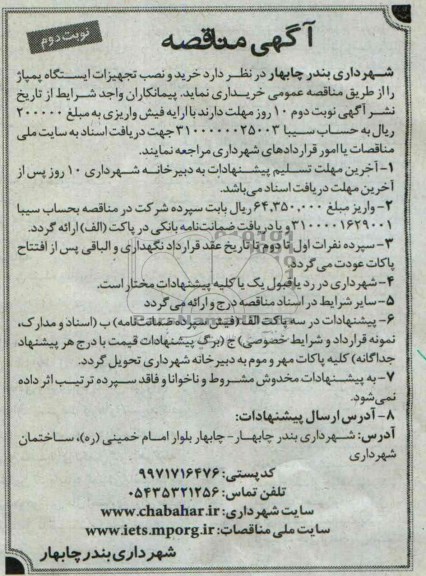 آگهی مناقصه
نوبت دوم
شهرداری بندر چابهار در نظر دارد خرید و نصب تجهیزات ایستگاه پمپاژ
را از طریق مناقصه عمومی خریداری نماید. پیمانکاران واجد شرایط از تاریخ
نشر آگهی نوبت دوم ۱۰ روز مهلت دارند با ارایه فیش واریزی به مبلغ ۲۰۰۰۰۰
ریال به حساب سیبا ۳۱۰۰۰۰۰۰۲۵۰۰۳ جهت دریافت اسناد به سایت ملی
مناقصات یا امور قراردادهای شهرداری مراجعه نمایند.
۱- آخرین مهلت تسلیم پیشنهادات به دبیرخانه شهرداری ۱۰ روز پس از
آخرین مهلت دریافت اسناد می‌باشد.
۲- واریز مبلغ ۶۴,۳۵۰,۰۰۰ ریال بابت سپرده شرکت در مناقصه بحساب سیبا
۰۳۱۰۰۰۰۱۶۲۹۰۰۱ و یا دریافت ضمانت‌نامه بانکی در پاکت (الف) ارائه گردد.
۳- سپرده نفرات اول تا دوم تا تاریخ عقد قرارداد نگهداری و الباقی پس از افتتاح
پاکات عودت می‌گردد.
۴- شهرداری در رد یا قبول یک یا کلیه پیشنهادات مختار است.
۵- سایر شرایط در اسناد مناقصه درج و ارائه می‌گردد
۶- پیشنهادات در سه پاکت الف (فیش سپرده ضمانت‌نامه) ب (اسناد و مدارک،
نمونه قرارداد و شرایط خصوصی) ج (برگ پیشنهادات قیمت با درج هر پیشنهاد
جداگانه) کلیه پاکات مهر و موم به دبیرخانه شهرداری تحویل گردد.
۷- به پیشنهادات مخدوش مشروط و ناخوانا و فاقد سپرده ترتیب اثر داده
نمی‌شود.
۸- آدرس ارسال پیشنهادات:
آدرس: شهرداری بندر چابهار - چابهار بلوار امام خمینی (ره)، ساختمان
شهرداری
کدپستی: ۹۹۷۱۷۱۶۴۷۶
تلفن تماس: ۰۵۴۳۵۳۲۱۲۵۶
سایت شهرداری: www.chabahar.ir
سایت ملی مناقصات: www.iets.mporg.ir
شهرداری بندر چابهار